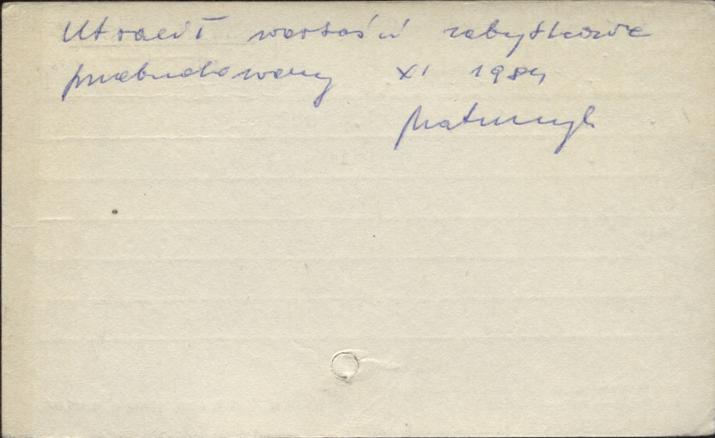 Utracił wartość zabytkowe
przebudowany XI 1984